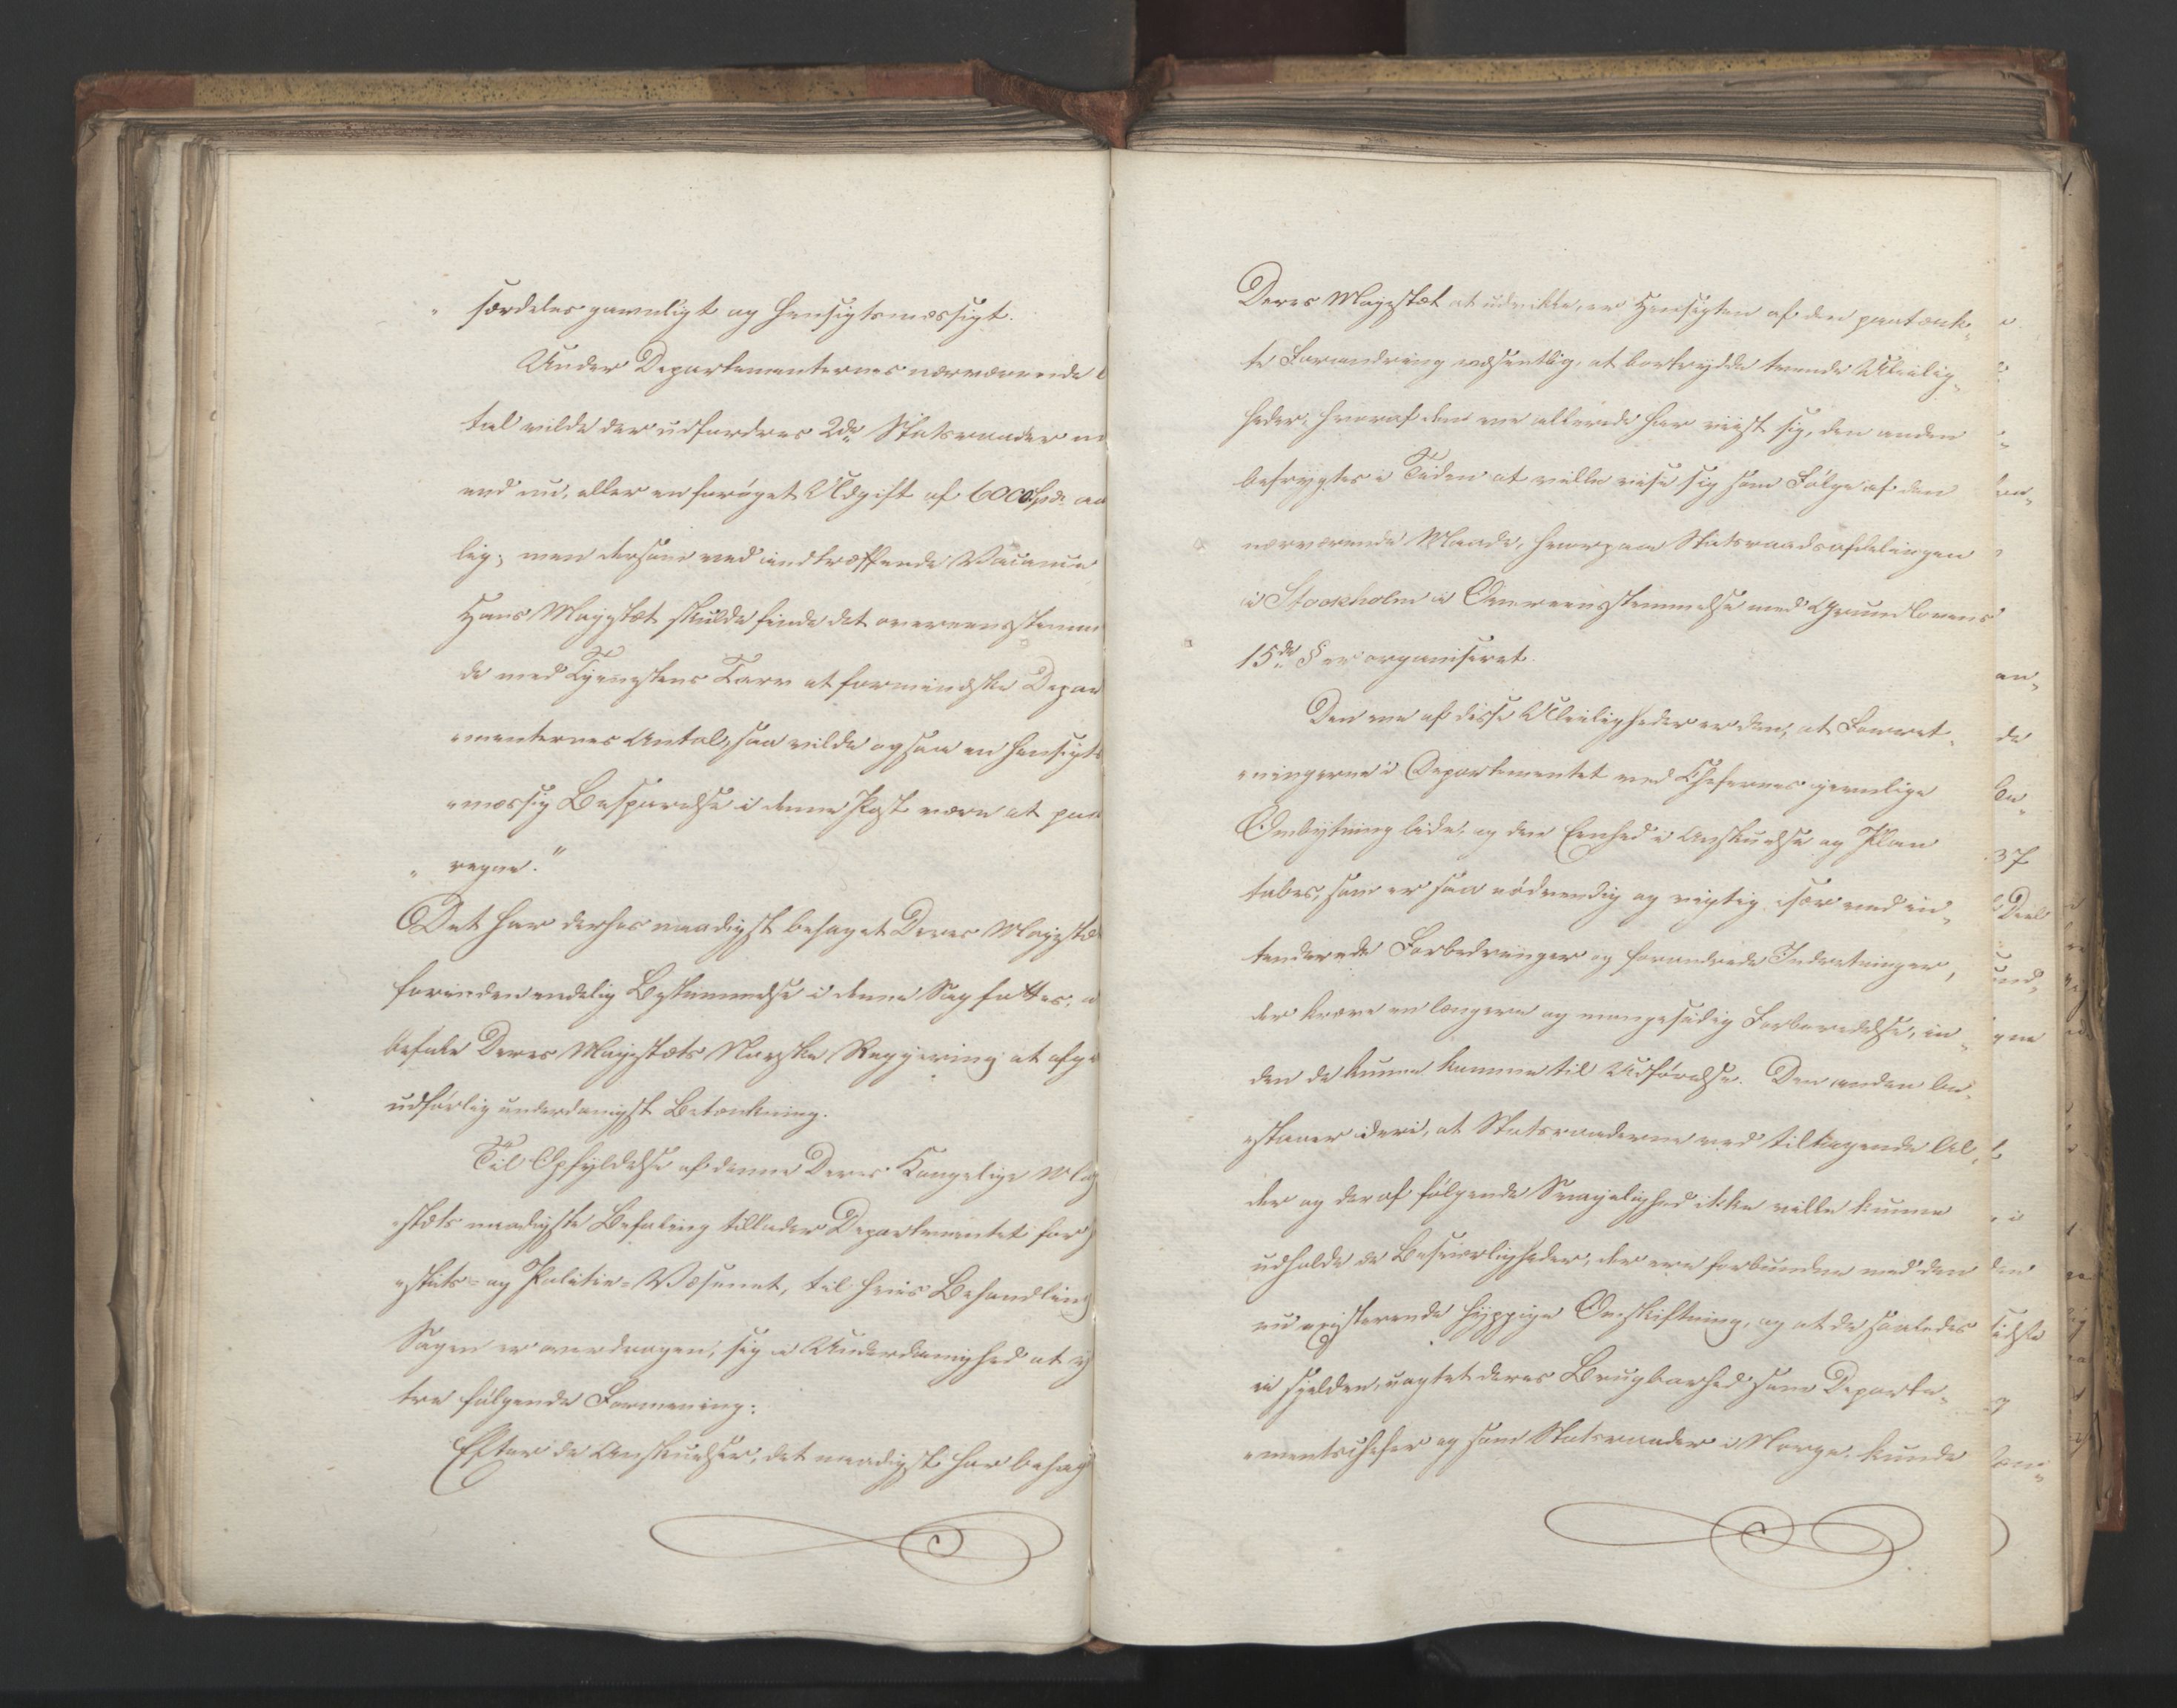 " særdeles gavnligt og hensigtsmæssigt.
Under Departementernes nærværende
tal vilde der udfordres 2de Statsraader
end nu, eller en forøget Udgift af 6000 Spd. aa
lig; men dersom ved indtræffende Vacance
Hans Majestæt skulde finde det overeensstemmen
de med Tjenestens Tarv at formindske Depar
"menternes Antal, saa vilde ogsaa en hensigts
"mæssig Besparelse i denne Post være at paa
" regne."
Det har derhos naadigst behaget Deres Majestæ
forinden endelig Bestemmelse i denne Sag fattes, a
befale Deres Majestæts Norske Regjering at afgi
udførlig underdanigst Betænkning.
Til Opfyldelse af denne Deres Kongelige Maj
"stæts naadigste Befaling tillader Departementet for J
"stits- og Politie-Væsenet, til hvis Behandling
Sagen er overdragen, sig i Underdanighed at y
tre følgende Formening:
Efter de Anskuelser, det naadigst har behag
Deres Majestæt at udvikle, er Hensigten af den paatænk-
te Forandring væsentlig, at bortrydde tvende Uleilig-
heder, hvoraf den ene allerede har viist sig, den anden
befrygtes i Tiden at ville vise sig som Følge af den
nærværende Maade, hvorpaa Statsraadsafdelingen
i Stockholm i Overeensstemmelse med Grundlovens
15de § er organiseret.
Den ene af disse Uleiligheder er den, at Forret-
"ningerne i Departementet ved Chefernes jevnlige
Ombytning lide, og den Eenhed i Anskuelse og Plan
tabes, som er saa nødvendig og vigtig især ved in-
tenderede Forbedringer og forandrede Indretninger,
der kræve en længere og mangesidig Forberedelse, in-
den de kunne komme til Udførelse. Den anden be-
"staaer deri, at Statsraaderne ved tiltagende Al-
der og deraf følgende Svagelighed ikke ville kunne
udholde de Besværligheder, der ere forbundne med den
nu existerende hyppige Omskiftning, og at de saaledes
ei sjelden, uagtet deres Brugbarhed som Departe-
"mentschefer og som Statsraader i Norge, kunde